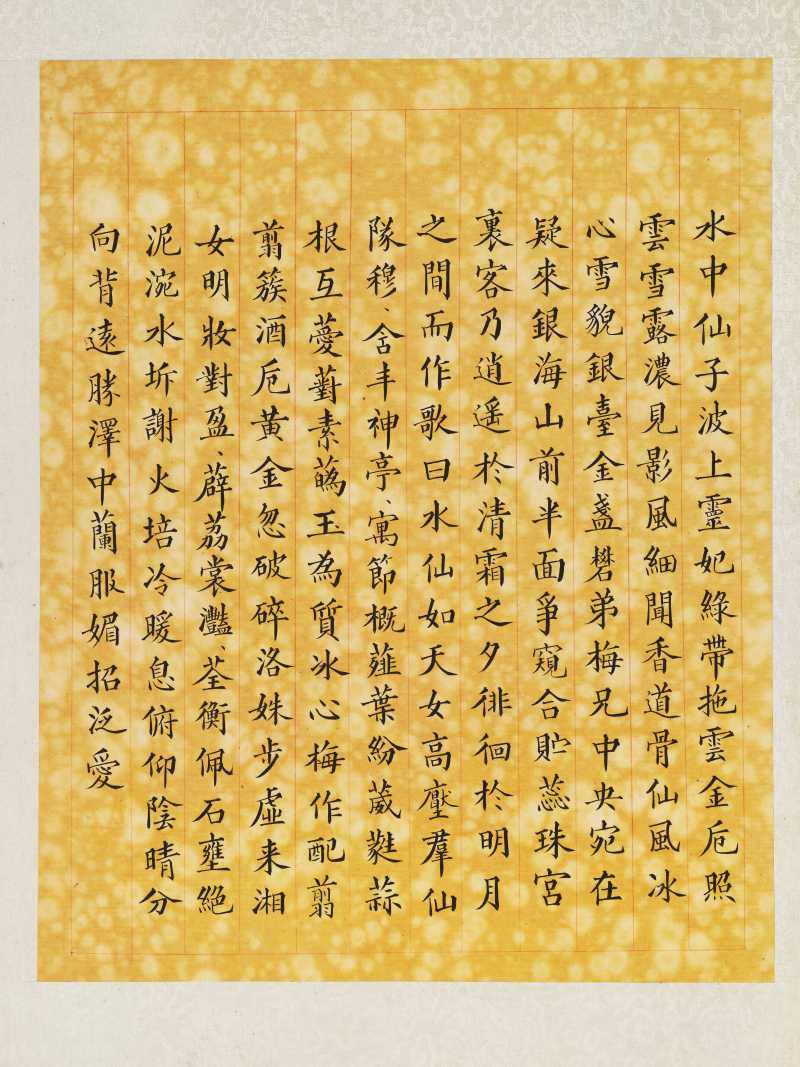 水中仙子波上靈妃綠帶拖雲金卮照
雲雪露濃見影風細聞香道骨仙風冰
心雪貌銀臺金盞礬弟梅兄中央宛在
疑來銀海山前半面爭窺合貯蕊珠宮
裏客乃逍遥於清霜之夕徘徊於明月
之間而作歌曰水仙如天女高壓羣仙
隊穆、含丰神亭、寓節概薤葉紛葳蕤蒜
根互薆薱素蘤玉為質冰心梅作配翦
翦簇酒卮黄金忽破碎洛姝步虛来湘
女明妝對盈、薜荔裳灩、荃蘅佩石壅絕
泥涴水坼謝火培冷暖息俯仰陰晴分
向背遠勝澤中蘭服媚招泛愛